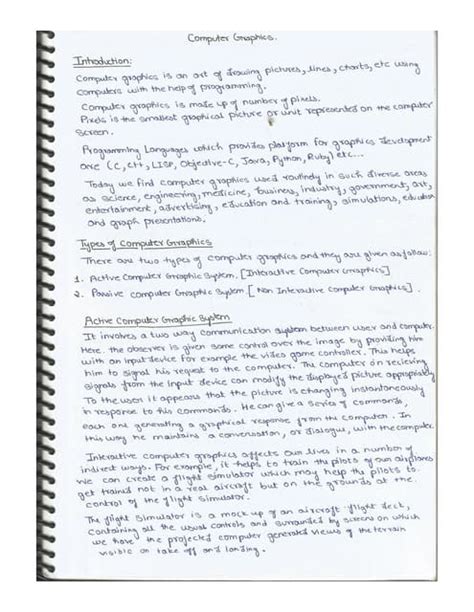 Computer Graphics.
Introduction:
Computer graphics is an art of drawing pictures, lines, charts, etc using
computers with the help of programming.
Computer graphics is made up of number of pixels.
Pixels is the smallest graphical picture or unit represented on the computer
screen.
Programming Languages which provides platform for graphics development
are (C, C++, LISP, Objective-C, Java, Python, Ruby) etc...
Today we find computer graphics used routinely in such diverse areas
as science, engineering, medicine, business, industry, government, art,
entertainment, advertising, education and training, simulations, education
and graph presentations.
Types of Computer Graphics
There are two types of computer graphics and they are given as follow:
1. Active Computer Graphic System. [Interactive Computer Graphics]
2. Passive computer Graphic System [Non Interactive Computer Graphics].
Active Computer Graphic System
It involves a two way communication system between user and computer.
Here. the observer is given some control over the image by providing him
with an input device for example the video game controller. This helps
him to signal his request to the computer. The computer on recieving
signals from the input device can modify the displayed picture appropriately
To the user it appears that the picture is changing instantaneously
in response to this commands. He can give a series of commands,
each one generating a graphical response from the computer. In
this way he maintains a conversation, or dialogue, with the computer.
Interative computer graphics affects our lives in a number of
indirect ways. For example, it helps to train the pilots of our airplanes
We can create a flight simulator which may help the pilots to
get trained not in a real aircraft but on the grounds at the
control of the flight simulator.
The flight simulator is a mock up of an aircraft flight deck,
containing all the usual controls and surrounded by screens on which
we have the projected computer generated views of the terrain
visible on take off and landing.